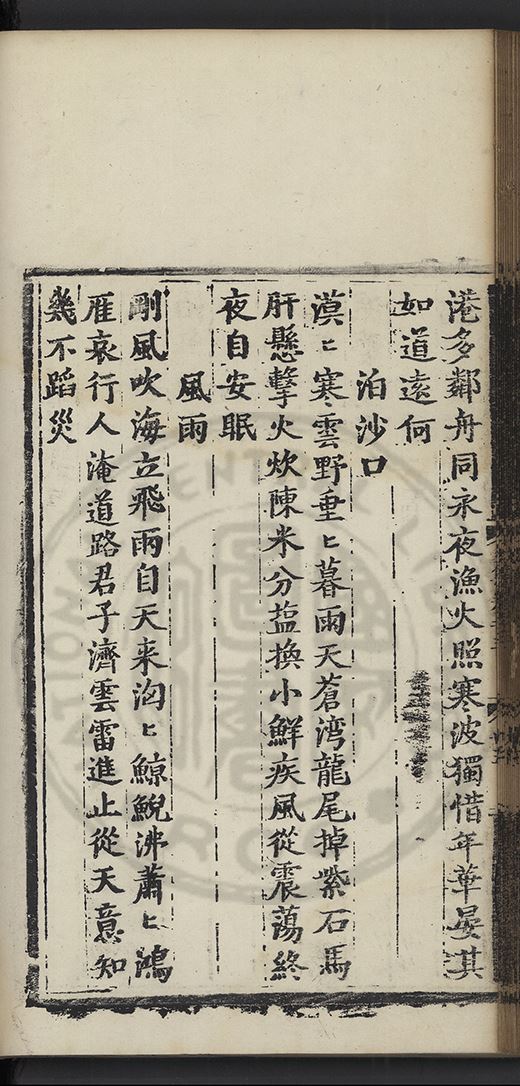 港多鄰舟同永夜漁火照寒波獨惜年華晏其
如道遠何
泊沙口
漠〻寒雲野垂〻暮雨天蒼湾龍尾掉紫石馬
肝懸擊火炊陳米分盐換小鮮疾風從震蕩終
夜自安眠
風雨
剛風吹海立飛雨自天来洶〻鯨鯢沸蕭〻鴻
雁哀行人淹道路君子濟雲雷進止從天意知
幾不蹈災